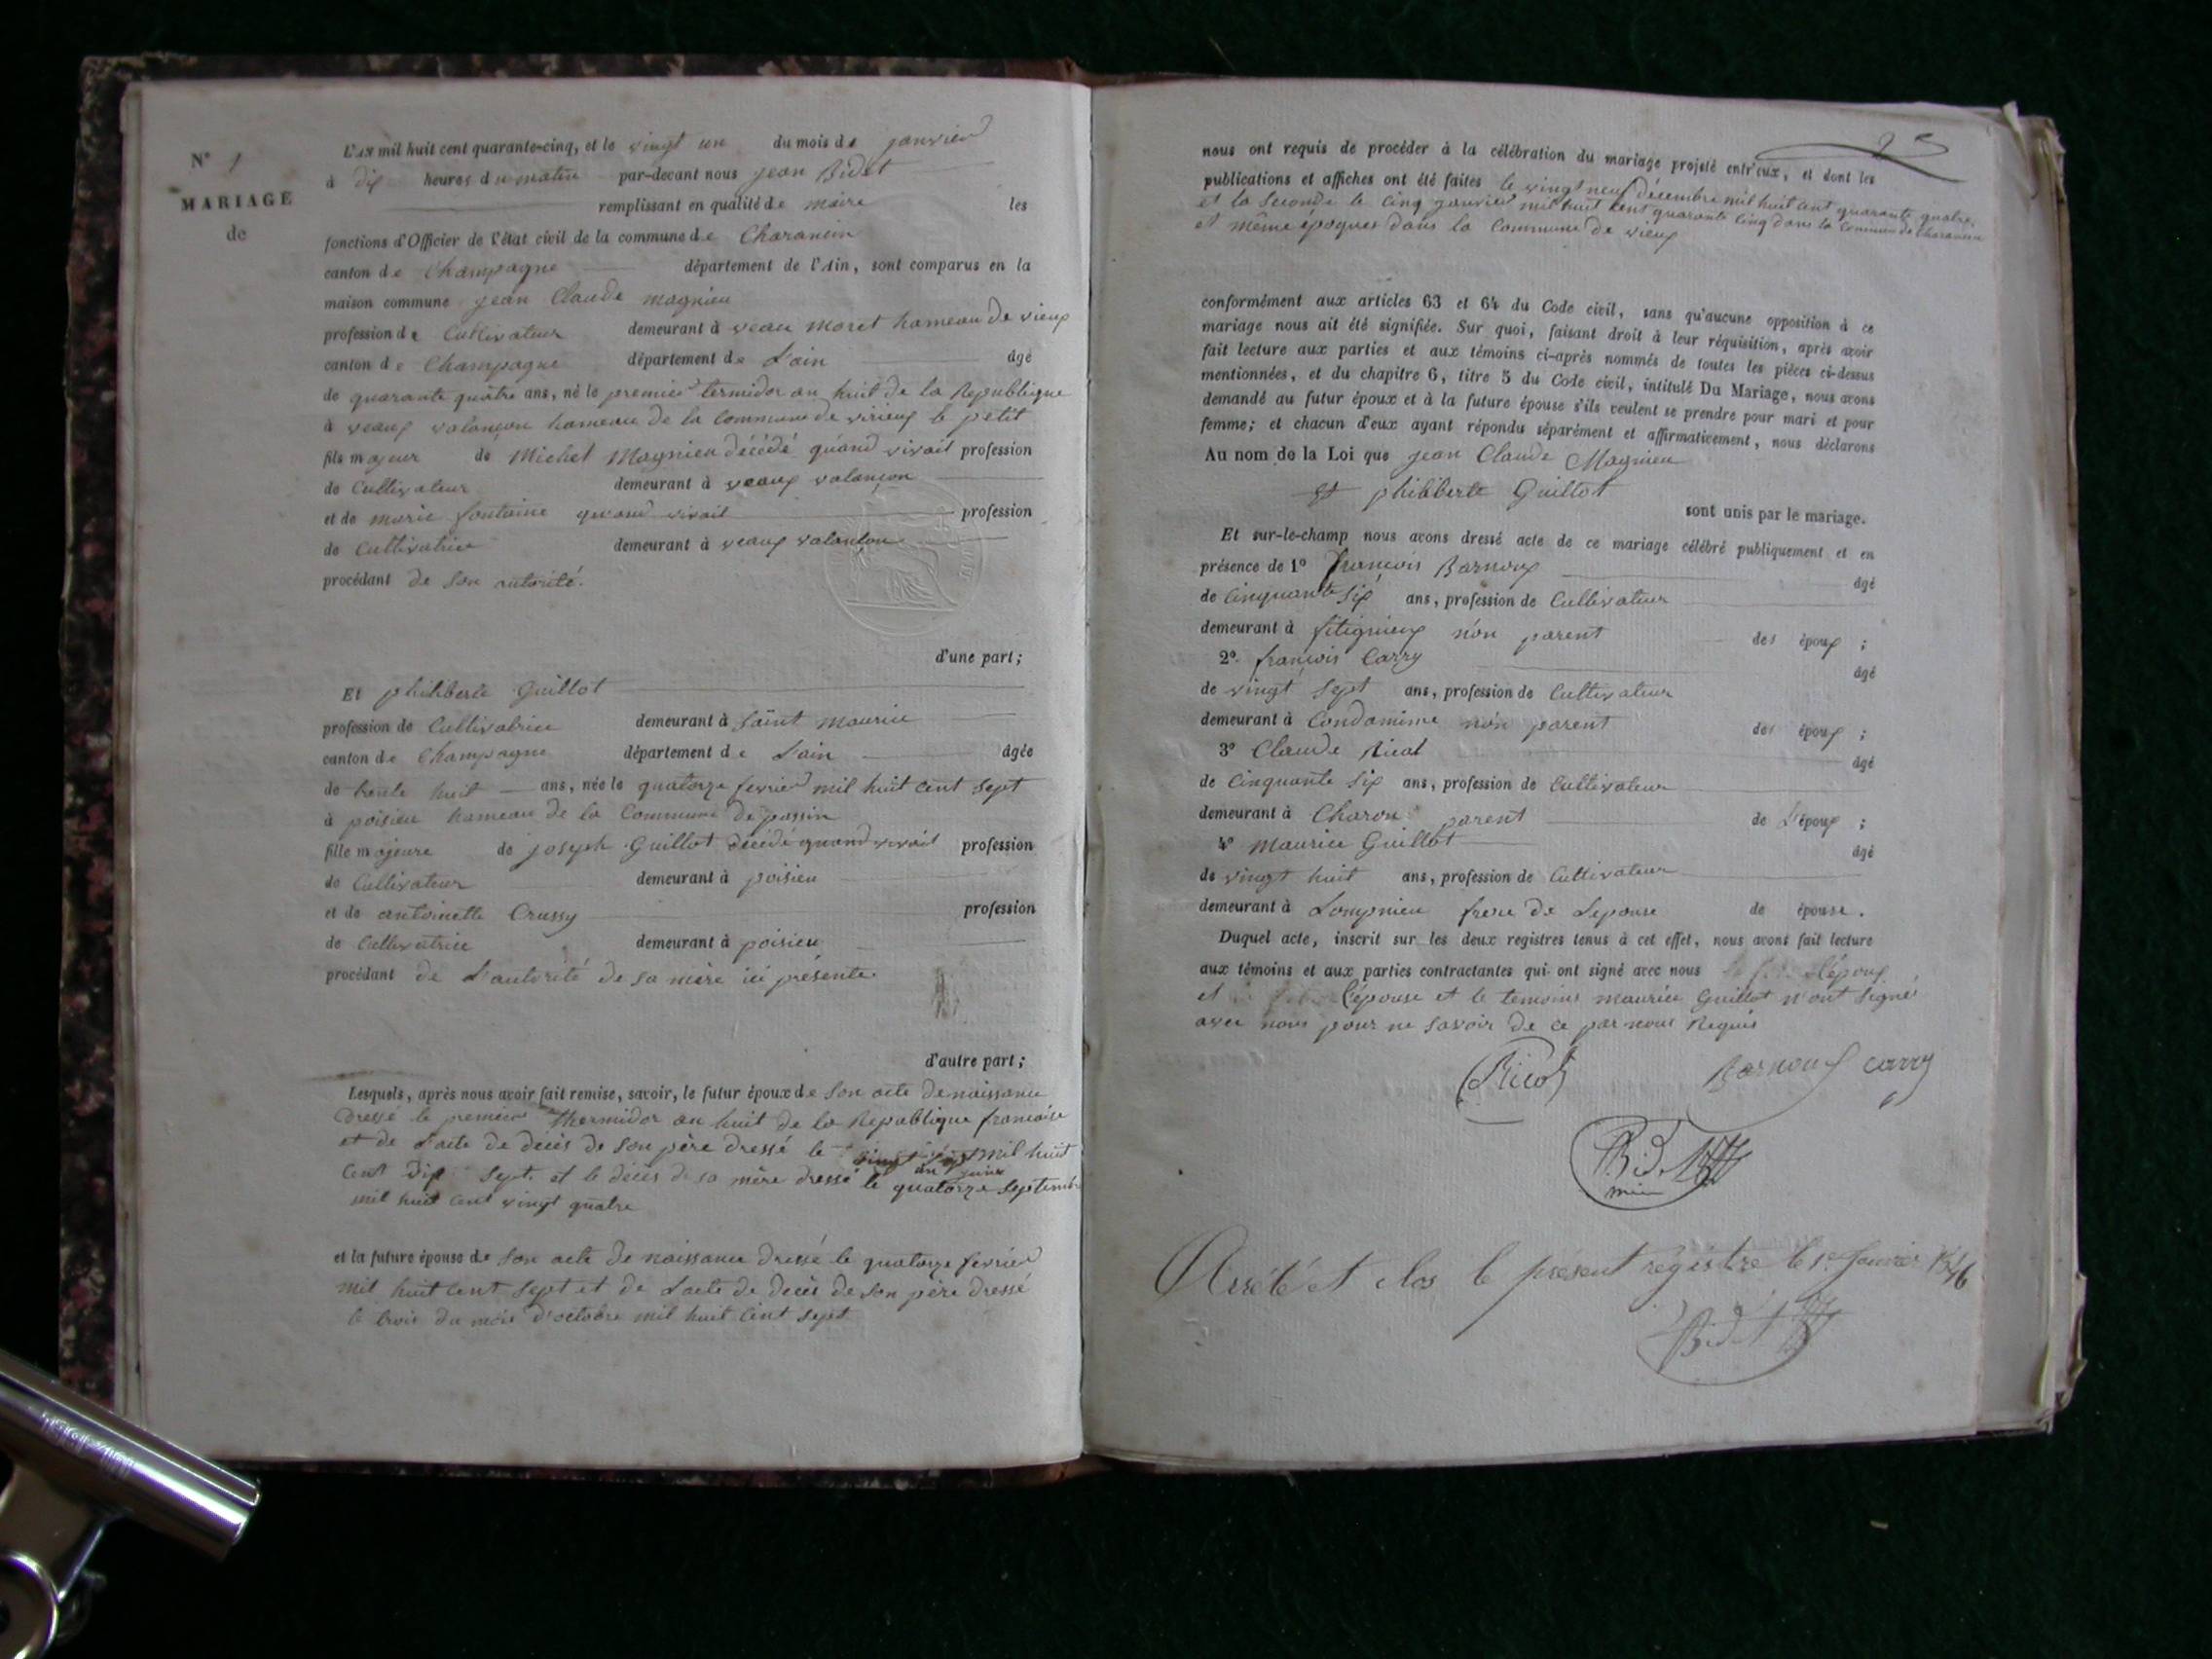 N° 1
MARIAGE
de
L'AN mil huit cent quarante-cinq, et le vingt un du mois de janvier
à dix heures du matin par-devant nous jean Bidet
remplissant en qualité de maire les
fonctions d'Officier de l'état civil de la commune de Charancin
canton de Champagne département de l'Ain, sont comparus en la
maison commune jean Claude magnieu
profession de Cultivateur demeurant à veau moret hameau de vieux
canton de Champagne département de L'ain âgé
de quarante quatre ans, né le premier termidor an huit de la Republique
à veaux valançon hameau de la Commune de virieux le petit
fils majeur de Michel Magnieu décédé quand vivait profession
de Cultivateur demeurant à veaux valançon
et de marie fontaine quand vivait profession
de Cultivatrice demeurant à veaux valançon
procédant de Son autorité.
d'une part;
Et philiberte Guillot
profession de Cultivatrice demeurant à Saint maurice
canton de Champagne département de L'ain âgée
de trente huit ans, née le quatorze fevrier mil huit cent Sept
à poisieu hameau de la Commune de passin
fille majeure de joseph Guillot décédé quand vivait profession
de Cultivateur demeurant à poisieu
et de antoinette Crussy profession
de Cultivatrice demeurant à poisieu
procédant de L'autorité de sa mère ici présente
d'autre part;
Lesquels, après nous avoir fait remise, savoir, le futur époux de Son acte de naissance
Dressé le premier thermidor an huit de la Republique francaise
et de L'acte de décès de Son père dressé le vingt juin mil huit
Cent Dix Sept. et le décès de sa mère dressé le quatorze Septembre
mil huit cent vingt quatre
et la future épouse de Son acte de naissance dressé le quatorze fevrier
mil huit cent Sept et de L'acte de décès de Son père dressé
le trois du mois d'octobre mil huit cent sept
25
nous ont requis de procéder à la célébration du mariage projeté entr'eux, et dont les
publications et affiches ont été faites le vingt neuf décembre mil huit cent quarante quatre,
et la Seconde le Cinq janvier mil huit cent quarante Cinq dans la Commune de Charancin
et même époques dans la Commune de vieux
conformément aux articles 63 et 64 du Code civil, sans qu'aucune opposition à ce
mariage nous ait été signifiée. Sur quoi, faisant droit à leur réquisition, après avoir
fait lecture aux parties et aux témoins ci-après nommés de toutes les pièces ci-dessus
mentionnées, et du chapitre 6, titre 5 du Code civil, intitulé Du Mariage, nous avons
demandé au futur époux et à la future épouse s'ils veulent se prendre pour mari et pour
femme; et chacun d'eux ayant répondu séparément et affirmativement, nous déclarons
Au nom de la Loi que jean Claude Magnieu
Et philiberte Guillot
sont unis par le mariage.
Et sur-le-champ nous avons dressé acte de ce mariage célébré publiquement et en
présence de 1° françois Barnoux
âgé
de Cinquante Six ans, profession de Cultivateur
demeurant à fitignieux non parent des époux ;
2° françois Carry
âgé
de vingt Sept ans, profession de Cultivateur
demeurant à Condamine non parent des époux ;
3° Claude Ricot
âgé
de Cinquante Six ans, profession de Cultivateur
demeurant à Charon parent de L'époux ;
4° maurice Guillot
âgé
de vingt huit ans, profession de Cultivateur
demeurant à Lompnieu frere de Lepouse de épouse.
Duquel acte, inscrit sur les deux registres tenus à cet effet, nous avons fait lecture
aux témoins et aux parties contractantes qui ont signé avec nous l'époux
et l'épouse et le temoins maurice Guillot n'ont Signé
avec nous pour ne Savoir de ce par nous Requis
Ricot Barnoux carry
Bidet
maire
Arrêté et clos le présent régistre le 1er Janvier 1846
Bidet